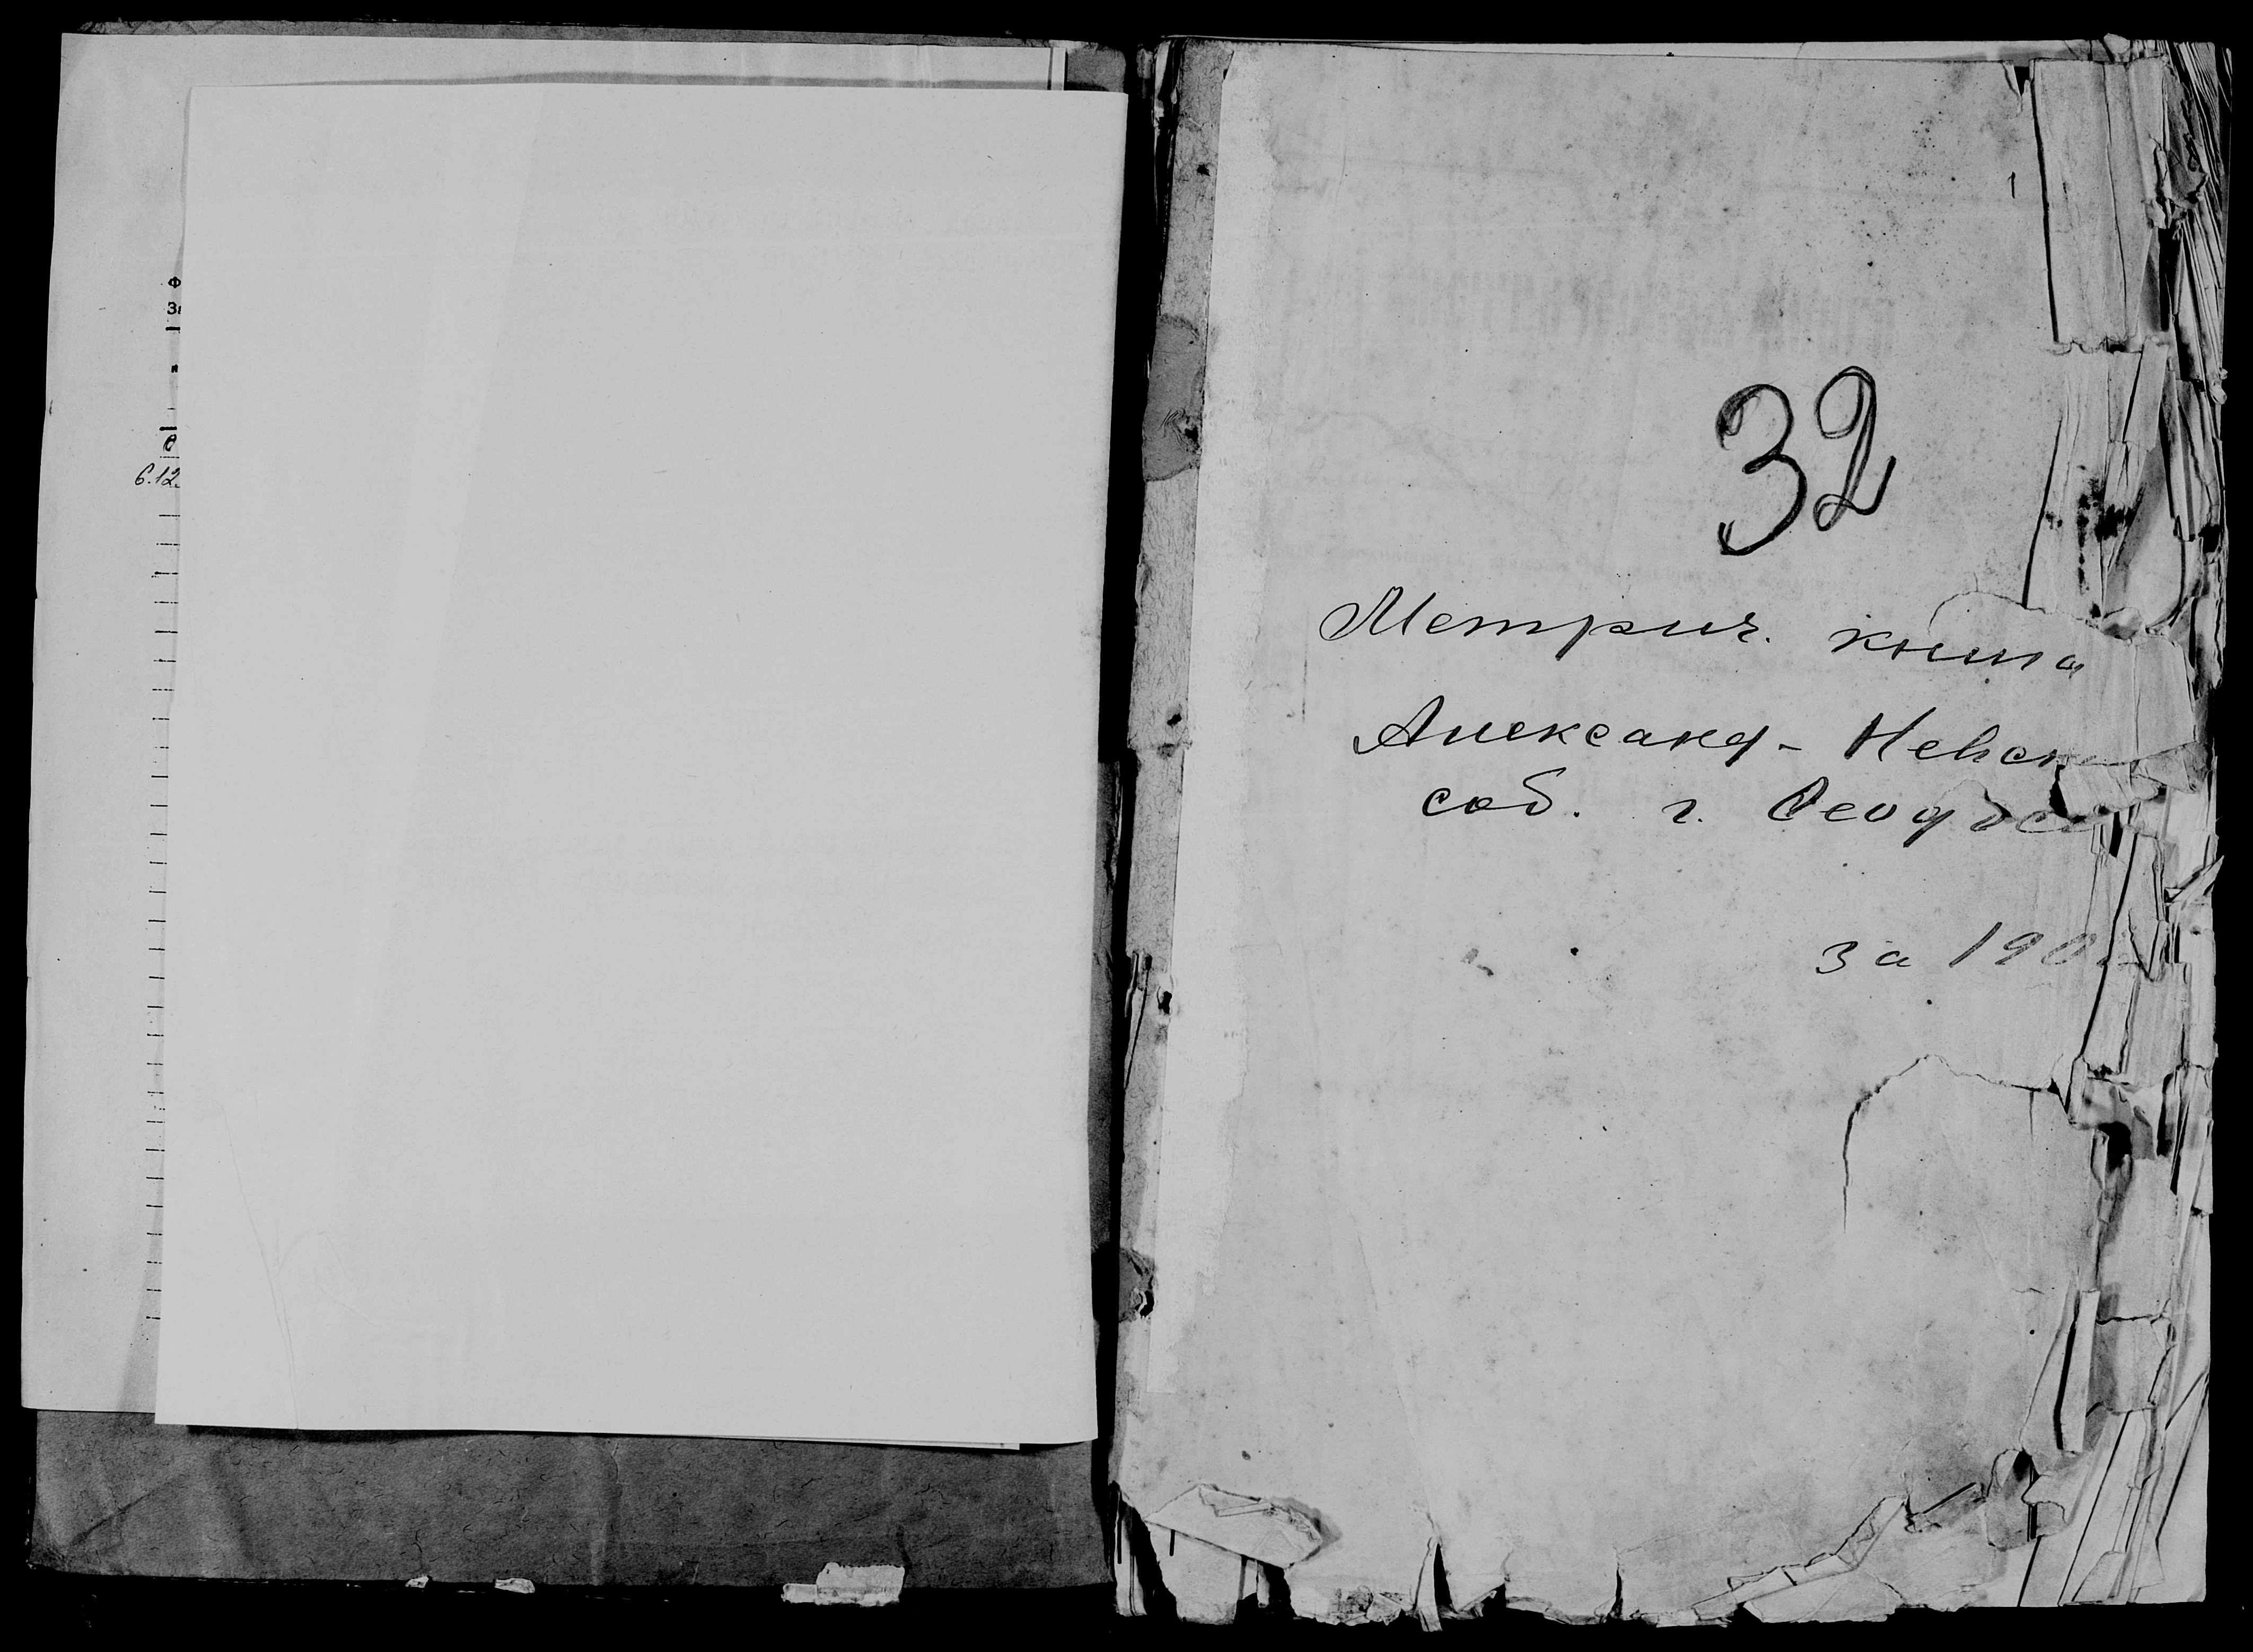 6.12
1
32
Метрич. книга
Александ- Невск
соб. г. Феодос
за 190